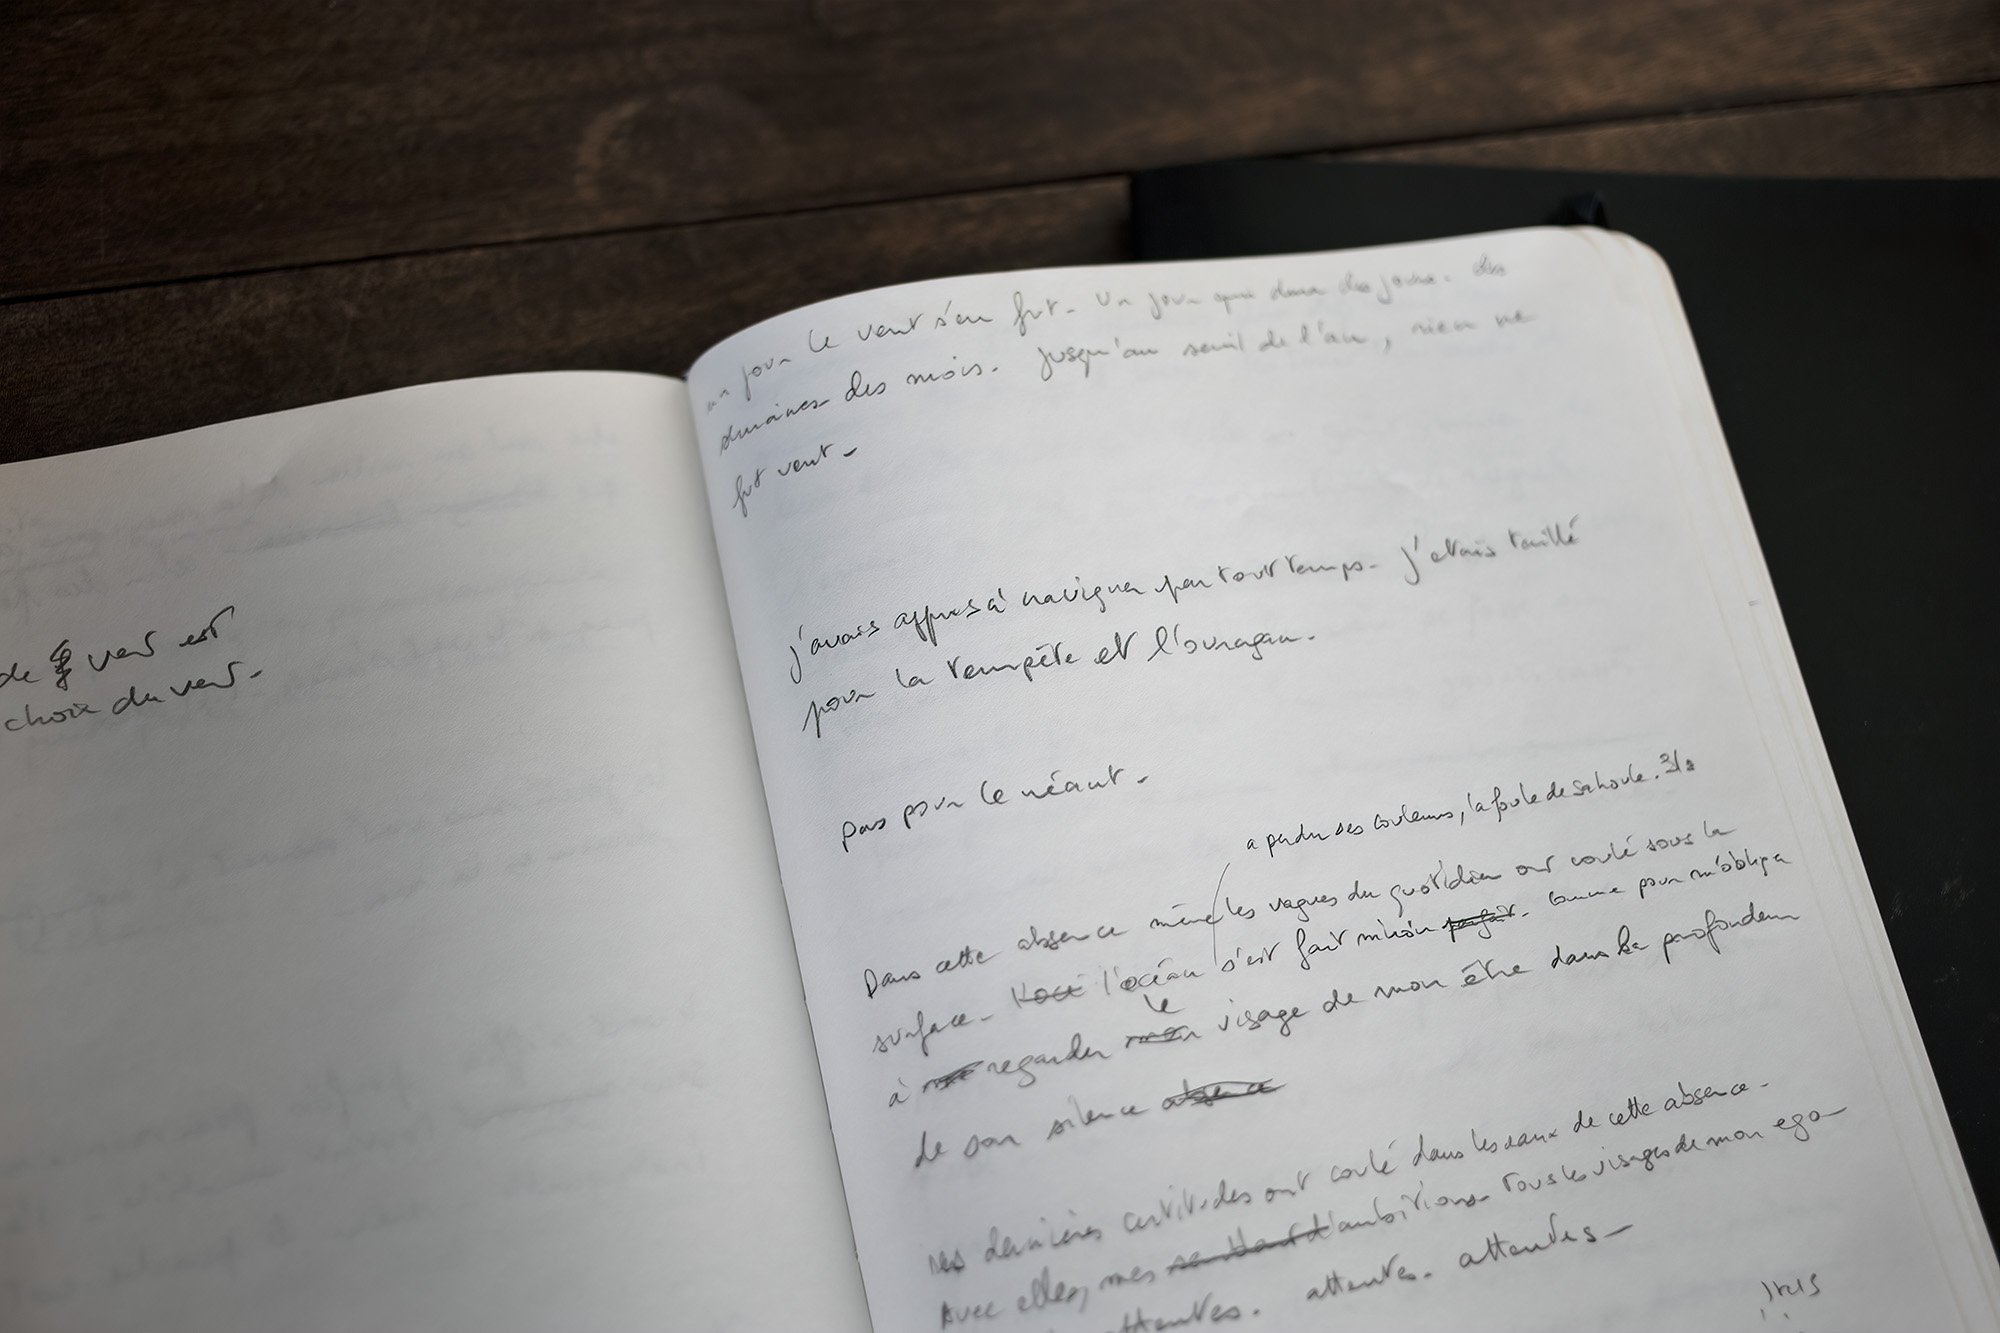 de vent est
choix du vent.
un jour le vent s'en fut. Un jour qui dura des jours. des
semaines. des mois. Jusqu'au seuil de l'an, rien ne
fut vent.
J'avais appris à naviguer par tout temps. J'étais taillé
pour la tempête et l'ouragan.
Pas pour le néant.
a perdu ses couleurs, la foule de sa houle.
Dans cette absence même les vagues du quotidien ont coulé sous la
surface. l'océan s'est fait miroir parfait. comme pour m'obliger
à regarder mon le visage de mon être dans la profondeur
de son silence absence
Mes dernières certitudes ont coulé dans les eaux de cette absence.
Avec elles, mes d'ambitions. Tous les visages de mon ego.
attentes. attentes. attentes.